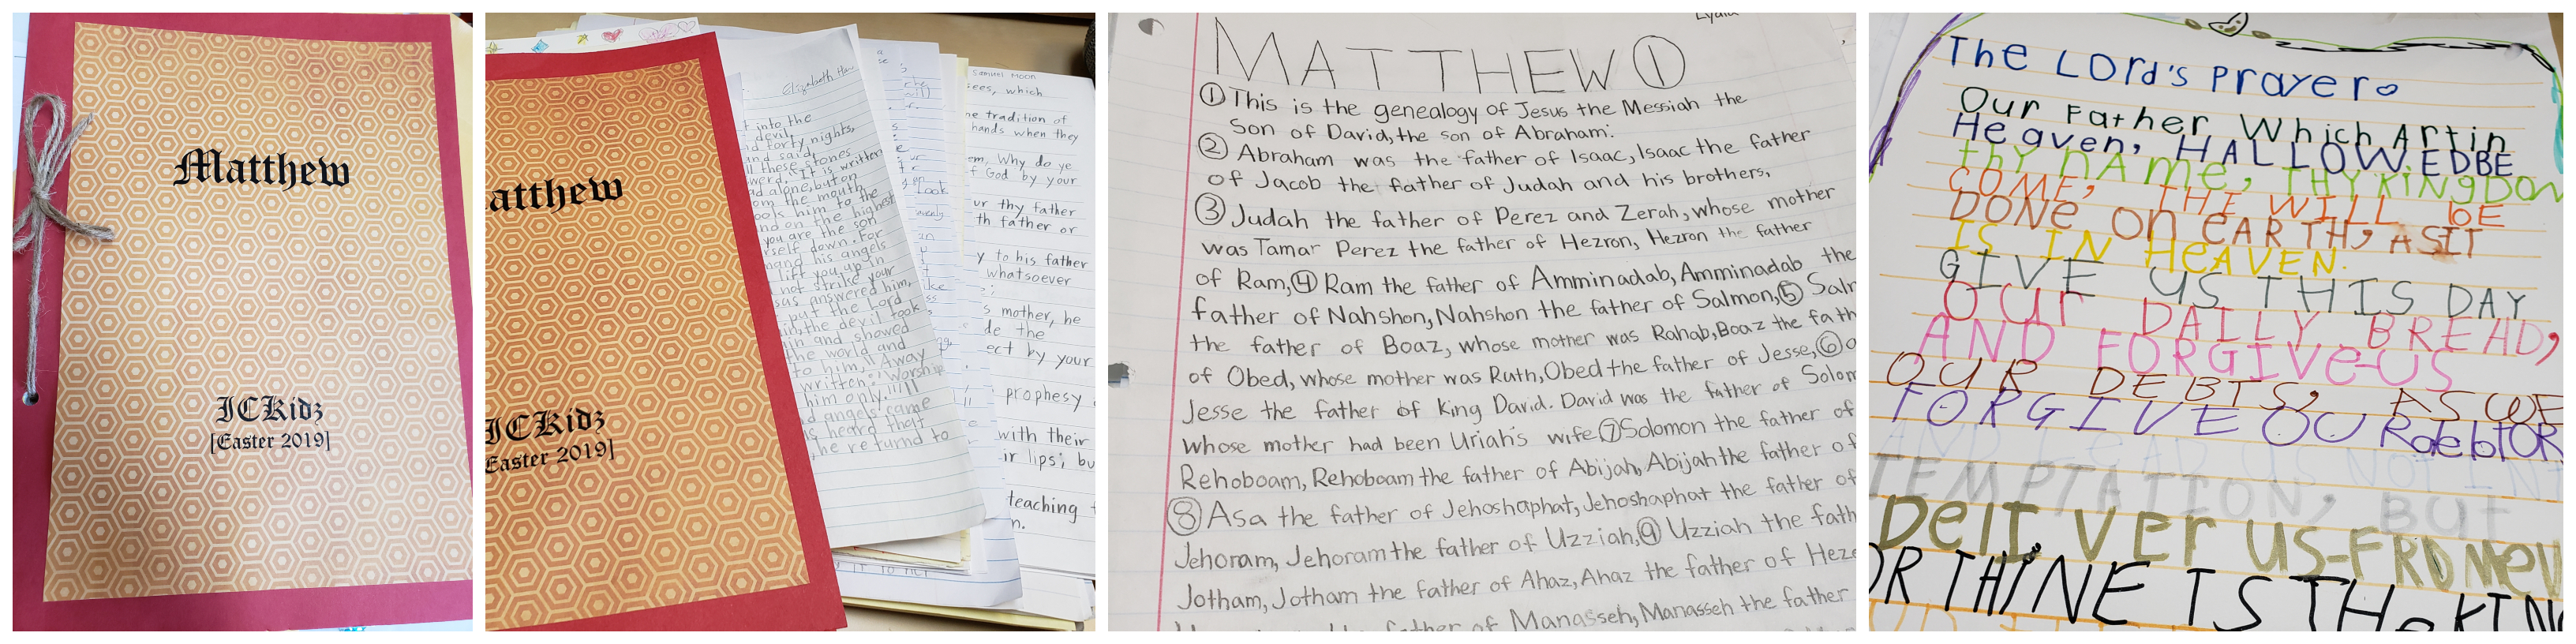 Matthew
ICKidz
[Easter 2019]
atthew
ICKidz
Easter 2019]
Elizabeth
t into the
devil.
d forty nights,
and said,
ll these stones
It is written
ad alone, but on
om the mouth
ook him to the
nd on the highest
you are the son
rself down. For
mand his angels
lift you up in
not strike your
sus answered him,
put the Lord
in, the devil took
in and showed
the world and
to him, "Away
written: "Worship
him only."'"
d angels came
s heard that
he returnd to
Samuel Moon
sees, which
he tradition of
hands when they
em, Why do ye
f God by your
ur thy father
th father or
y to his father
whatsoever
s mother, he
de the
ect by your
prophesy
with their
ir lips; bu
teaching
n.
Lydia
MATTHEW ①
① This is the genealogy of Jesus the Messiah the
Son of David, the son of Abraham:
② Abraham was the father of Isaac, Isaac the father
of Jacob the father of Judah and his brothers,
③ Judah the father of Perez and Zerah, whose mother
was Tamar Perez the father of Hezron, Hezron the father
of Ram, ④ Ram the father of Amminadab, Amminadab the
father of Nahshon, Nahshon the father of Salmon, ⑤ Salm
the father of Boaz, whose mother was Rahab, Boaz the fath
of Obed, whose mother was Ruth, Obed the father of Jesse, ⑥ a
Jesse the father of King David. David was the father of Solom
whose mother had been Uriah's wife ⑦ Solomon the father of
Rehoboam, Rehoboam the father of Abijah, Abijah the father of
⑧ Asa the father of Jehoshaphat, Jehoshaphat the father of
Jehoram, Jehoram the father of Uzziah, ⑨ Uzziah the fath
Jotham, Jotham the father of Ahaz, Ahaz the father of Heze
father of Manasseh, Manasseh the father
The LOrd's Prayer
Our Father Which Art in
Heaven, HALLOWEDBE
thY nAme, THY KiNgDOM
COME, THI WILL bE
DONE On EARTH, ASIT
IS IN HeAVEN.
GIVE US THIS DAY
OUr DAILY BREAD,
AND FORGIVE-US
OUR DEBTS, AS WE
FORGIVE OU RdebtOR
AND LEAD US NOT INT
TEMPTATION, BUt
DelI Ver US-FROMeV
OR THiNE IS THe KIN